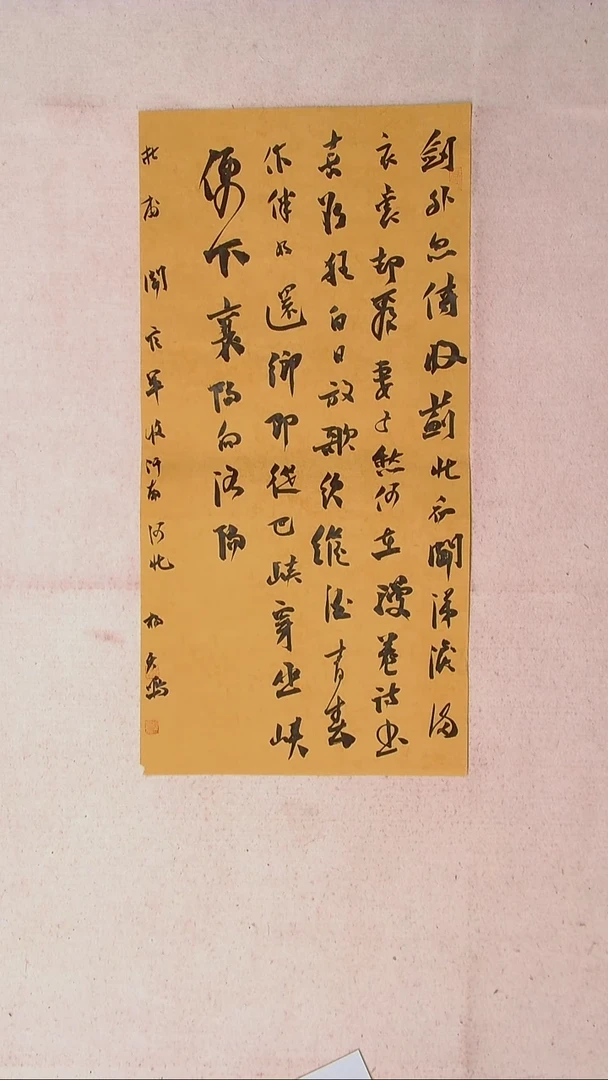 劍外忽傳收薊北初聞涕淚滿
衣裳却看妻子愁何在漫卷詩书
喜欲狂白日放歌須縱酒青春
作伴好還鄉即從巴峽穿巫峽
便下襄陽向洛陽
杜甫 聞官軍收河南河北